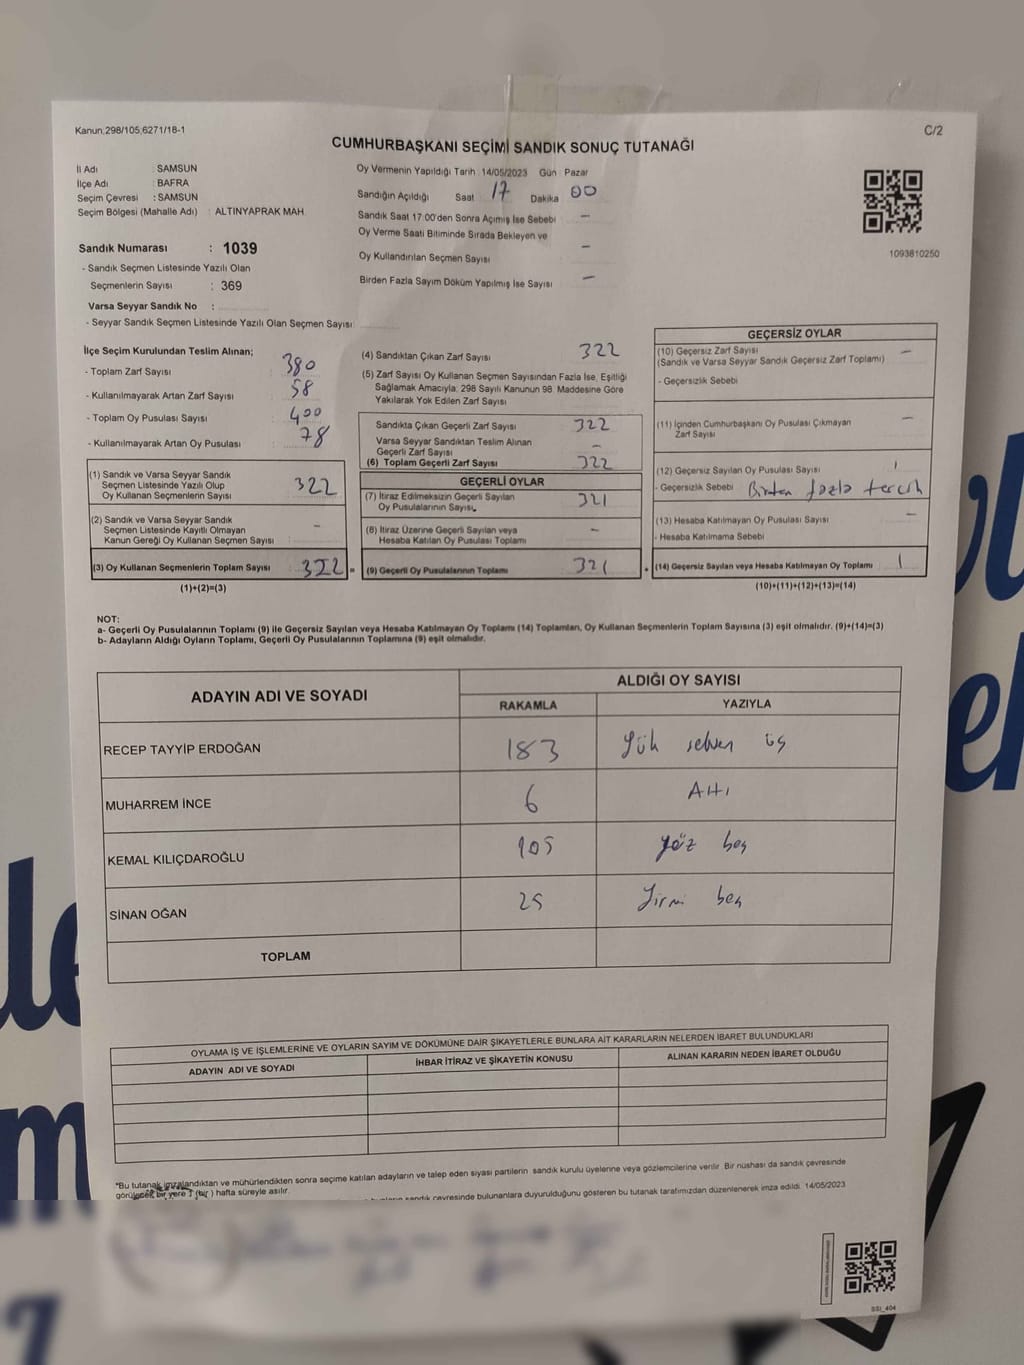 Kanun;298/105,6271/18-1
C/2
CUMHURBAŞKANI SEÇİMİ SANDIK SONUÇ TUTANAĞI
İl Adı : SAMSUN
İlçe Adı : BAFRA
Seçim Çevresi : SAMSUN
Seçim Bölgesi (Mahalle Adı) : ALTINYAPRAK MAH.
Sandık Numarası : 1039
- Sandık Seçmen Listesinde Yazılı Olan
Seçmenlerin Sayısı : 369
Varsa Seyyar Sandık No :
- Seyyar Sandık Seçmen Listesinde Yazılı Olan Seçmen Sayısı:
Oy Vermenin Yapıldığı Tarih : 14/05/2023 Gün : Pazar
Sandığın Açıldığı Saat 17 Dakika 00
Sandık Saat 17:00'den Sonra Açılmış İse Sebebi —
Oy Verme Saati Bitiminde Sırada Bekleyen ve
Oy Kullandırılan Seçmen Sayısı —
Birden Fazla Sayım Döküm Yapılmış İse Sayısı —
1093810250
İlçe Seçim Kurulundan Teslim Alınan;
- Toplam Zarf Sayısı : 380
- Kullanılmayarak Artan Zarf Sayısı : 58
- Toplam Oy Pusulası Sayısı : 400
- Kullanılmayarak Artan Oy Pusulası : 78
(1) Sandık ve Varsa Seyyar Sandık
Seçmen Listesinde Yazılı Olup
Oy Kullanan Seçmenlerin Sayısı 322
(2) Sandık ve Varsa Seyyar Sandık
Seçmen Listesinde Kayıtlı Olmayan
Kanun Gereği Oy Kullanan Seçmen Sayısı : —
(3) Oy Kullanan Seçmenlerin Toplam Sayısı 322 =
(1)+(2)=(3)
(4) Sandıktan Çıkan Zarf Sayısı 322
(5) Zarf Sayısı Oy Kullanan Seçmen Sayısından Fazla İse, Eşitliği
Sağlamak Amacıyla; 298 Sayılı Kanunun 98. Maddesine Göre
Yakılarak Yok Edilen Zarf Sayısı
Sandıkta Çıkan Geçerli Zarf Sayısı 322
Varsa Seyyar Sandıktan Teslim Alınan
Geçerli Zarf Sayısı —
(6) Toplam Geçerli Zarf Sayısı 322
GEÇERLİ OYLAR
(7) İtiraz Edilmeksizin Geçerli Sayılan
Oy Pusulalarının Sayısı. 321
(8) İtiraz Üzerine Geçerli Sayılan veya
Hesaba Katılan Oy Pusulası Toplamı —
(9) Geçerli Oy Pusulalarının Toplamı 321 +
GEÇERSİZ OYLAR
(10) Geçersiz Zarf Sayısı —
(Sandık ve Varsa Seyyar Sandık Geçersiz Zarf Toplamı)
- Geçersizlik Sebebi
(11) İçinden Cumhurbaşkanı Oy Pusulası Çıkmayan —
Zarf Sayısı
(12) Geçersiz Sayılan Oy Pusulası Sayısı 1
- Geçersizlik Sebebi Birden fazla tercih
(13) Hesaba Katılmayan Oy Pusulası Sayısı —
- Hesaba Katılmama Sebebi
(14) Geçersiz Sayılan veya Hesaba Katılmayan Oy Toplamı 1
(10)+(11)+(12)+(13)=(14)
NOT:
a- Geçerli Oy Pusulalarının Toplamı (9) ile Geçersiz Sayılan veya Hesaba Katılmayan Oy Toplamı (14) Toplamları, Oy Kullanan Seçmenlerin Toplam Sayısına (3) eşit olmalıdır. (9)+(14)=(3)
b- Adayların Aldığı Oyların Toplamı, Geçerli Oy Pusulalarının Toplamına (9) eşit olmalıdır.
ADAYIN ADI VE SOYADI
ALDIĞI OY SAYISI
RAKAMLA YAZIYLA
RECEP TAYYİP ERDOĞAN 183 Yük seksen üç
MUHARREM İNCE 6 Altı
KEMAL KILIÇDAROĞLU 105 yüz beş
SİNAN OĞAN 25 Yirmi beş
TOPLAM
OYLAMA İŞ VE İŞLEMLERİNE VE OYLARIN SAYIM VE DÖKÜMÜNE DAİR ŞİKAYETLERLE BUNLARA AİT KARARLARIN NELERDEN İBARET BULUNDUKLARI
ADAYIN ADI VE SOYADI İHBAR İTİRAZ VE ŞİKAYETİN KONUSU ALINAN KARARIN NEDEN İBARET OLDUĞU
*Bu tutanak imzalandıktan ve mühürlendikten sonra seçime katılan adayların ve talep eden siyasi partilerin sandık kurulu üyelerine veya gözlemcilerine verilir. Bir nüshası da sandık çevresinde
görülecek bir yere 1 (bir) hafta süreyle asılır.
sandık çevresinde bulunanlara duyurulduğunu gösteren bu tutanak tarafımızdan düzenlenerek imza edildi. 14/05/2023
SSI_404